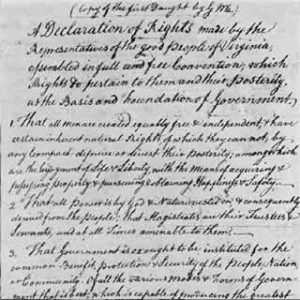 (Copy of the first Daught by G M.)
A Declaration of Rights made by the
Representatives of the good People of Virginia,
assembled in full and free Convention; which
Rights do pertain to them and their Posterity,
as the Basis and Foundation of Government.
1. That all men are created equally free & independent, & have
certain inherent natural Rights, of which they can not, by
any Compact, deprive or divest their Posterity; among which
are the Enjoyment of Life & Liberty, with the Means of acquiring &
possessing Property, & pursueing & obtaining Happiness & Safety.
2. That all Power is by God & Nature vested in, & consequently
derived from the People; that Magistrates are their Trustees &
Servants, and at all Times amenable to them.
3. That Government is or ought to be instituted for the
common Benefit, Protection & Security of the People, Nation
or Community. Of all the various Modes & Forms of Govern-
ment that is best, which is capable of producing the greatest